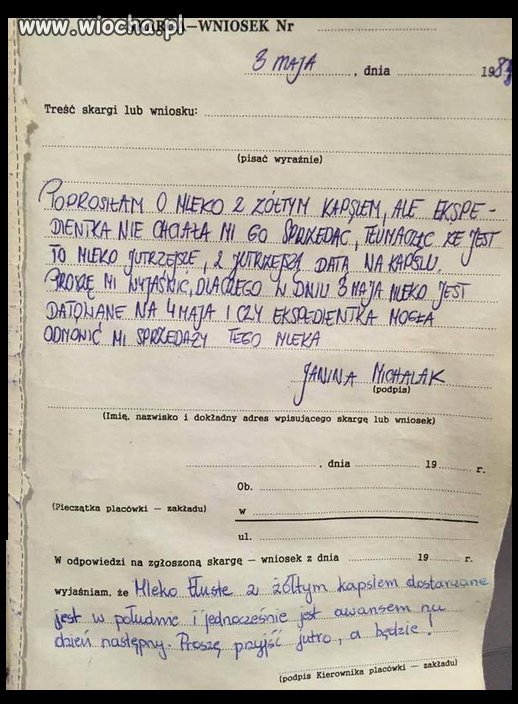 www.wiocha.pl
SKARGA—WNIOSEK Nr
3 MAJA, dnia 198
Treść skargi lub wniosku:
(pisać wyraźnie)
POPROSIŁAM O MLEKO Z ŻÓŁTYM KAPSLEM, ALE EKSPE-
DIENTKA NIE CHCIAŁA MI GO SPRZEDAĆ, TŁUMACZĄC ŻE JEST
TO MLEKO JUTRZEJSZE, Z JUTRZEJSZĄ DATĄ NA KAPSLU.
PROSZĘ MI WYJAŚNIĆ, DLACZEGO W DNIU 3 MAJA MLEKO JEST
DATOWANE NA 4 MAJA I CZY EKSPEDIENTKA MOGŁA
ODMÓWIĆ MI SPRZEDAŻY TEGO MLEKA
JANINA MICHALAK
(podpis)
(Imię, nazwisko i dokładny adres wpisującego skargę lub wniosek)
, dnia 19 r.
Ob.
(Pieczątka placówki — zakładu) w
ul.
W odpowiedzi na zgłoszoną skargę — wniosek z dnia 19 r.
wyjaśniam, że Mleko tłuste z żółtym kapslem dostarczane
jest w południe i jednocześnie jest awansem na
dzień następny. Proszę przyjść jutro, a będzie!
(podpis Kierownika placówki — zakładu)